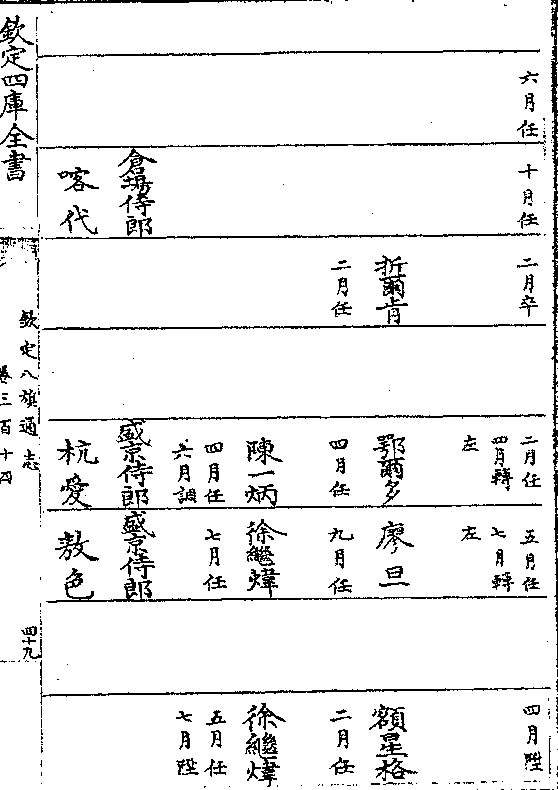 六月任
十月任
倉場侍郎
喀代
二月卒
折爾肯
二月任
二月任
四月轉
左
鄂爾多
四月任
陳一炳
四月任
六月調
盛京侍郎
杭愛
五月任
七月轉
左
廖旦
九月任
徐繼煒
七月任
盛京侍郎
敖色
四月陞
額星格
二月任
徐繼煒
五月任
七月陞
欽定四庫全書
欽定八旗通志
卷三百十四
四十九